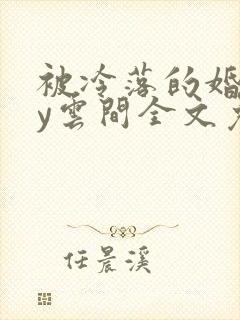 被冷落的婚
y雲間全文
任晨溪